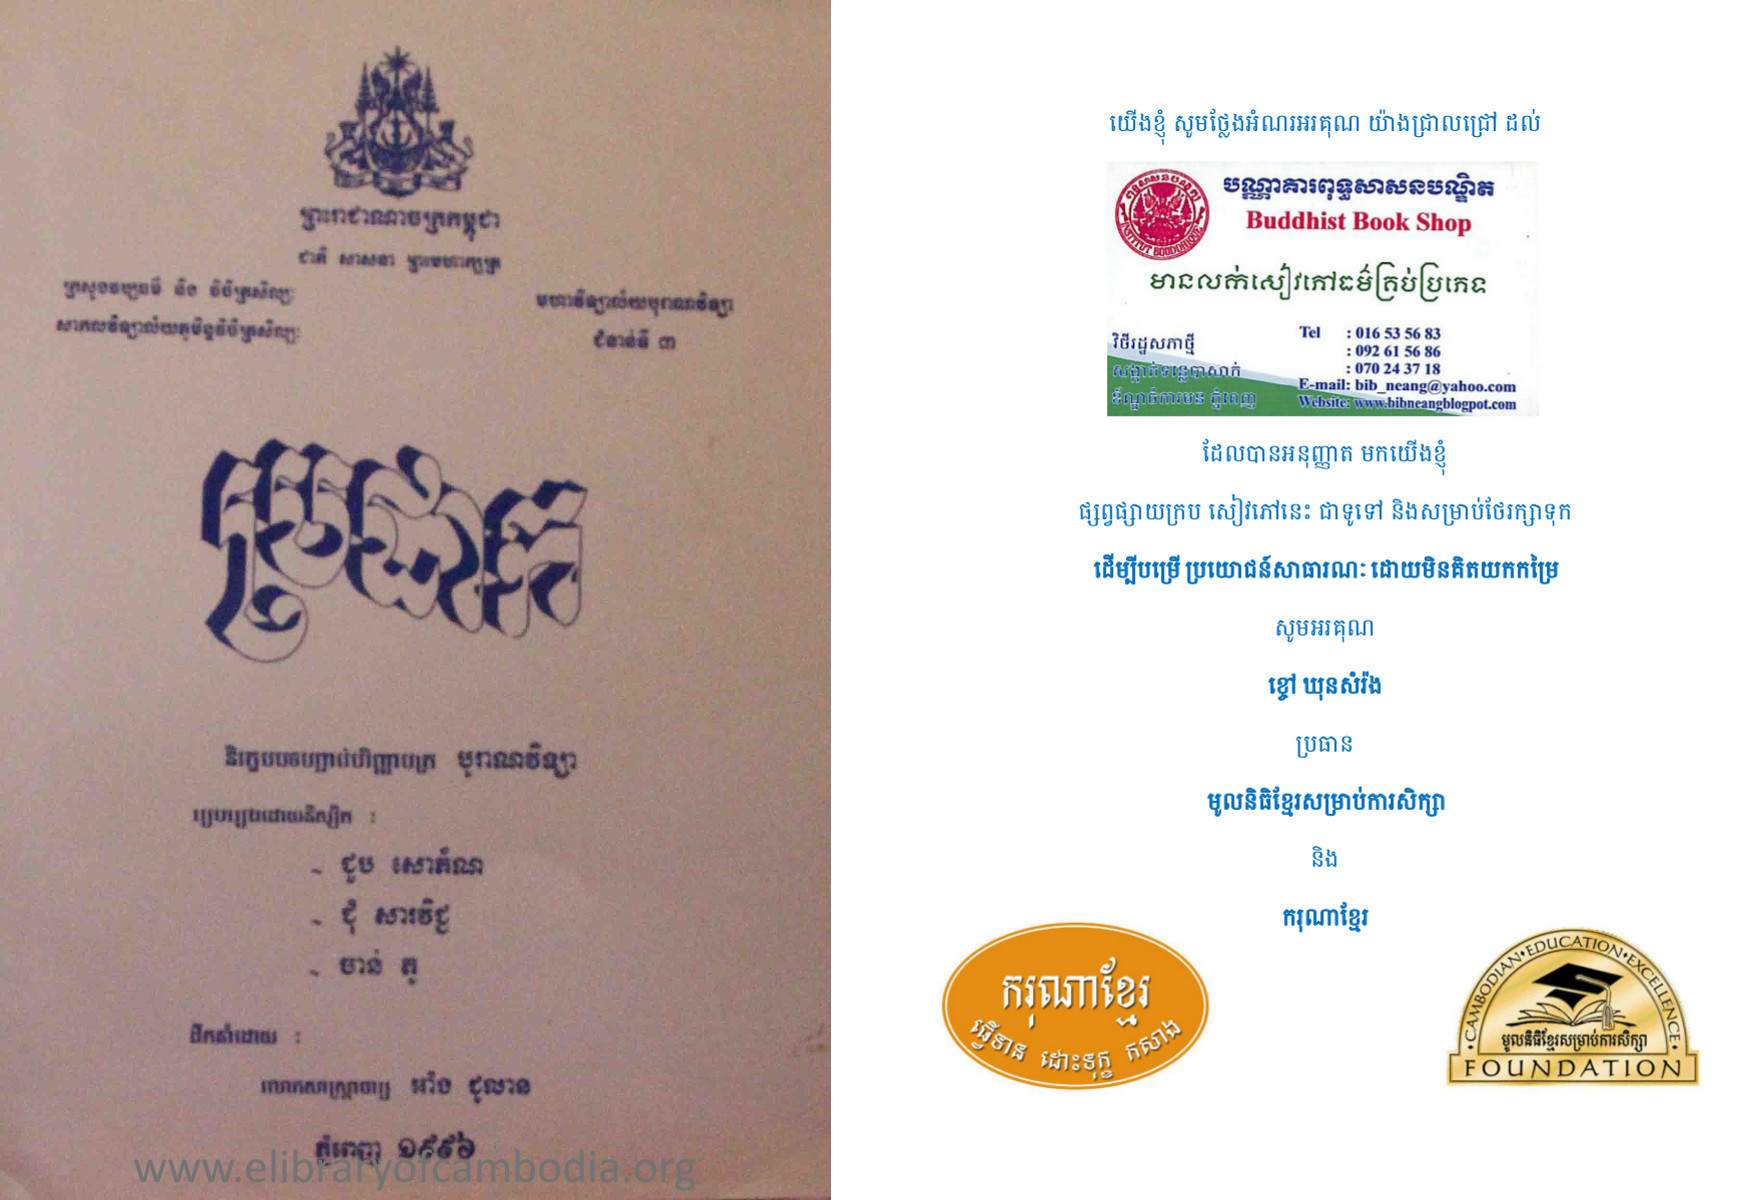 ព្រះរាជាណាចក្រកម្ពុជា
ជាតិ សាសនា ព្រះមហាក្សត្រ
ក្រសួងវប្បធម៌ និង វិចិត្រសិល្បៈ
សាកលវិទ្យាល័យភូមិន្ទវិចិត្រសិល្បៈ
មហាវិទ្យាល័យបុរាណវិទ្យា
ជំនាន់ទី ៣
និក្ខេបបទបញ្ចប់បរិញ្ញាបត្រ បុរាណវិទ្យា
រៀបរៀងដោយនិស្សិត :
- ជួប សោភ័ណ
- ជុំ សារវិជ្ជ
- ចាន់ តូ
ដឹកនាំដោយ :
លោកសាស្ត្រាចារ្យ អាំង ជូលាន
ភ្នំពេញ ១៩៩៦
www.elibraryofcambodia.org
យើងខ្ញុំ សូមថ្លែងអំណរអរគុណ យ៉ាងជ្រាលជ្រៅ ដល់
បណ្ណាគារពុទ្ធសាសនបណ្ឌិត
Buddhist Book Shop
INSTITUT BOUDDHIQUE
មានលក់សៀវភៅធម៌គ្រប់ប្រភេទ
វិថីរដ្ឋសភាថ្មី
សង្កាត់ទន្លេបាសាក់
ខ័ណ្ឌចំការមន ភ្នំពេញ
Tel : 016 53 56 83
: 092 61 56 86
: 070 24 37 18
E-mail: bib_neang@yahoo.com
Website: www.bibneangblogpot.com
ដែលបានអនុញ្ញាត មកយើងខ្ញុំ
ផ្សព្វផ្សាយក្រប សៀវភៅនេះ ជាទូទៅ និងសម្រាប់ថែរក្សាទុក
ដើម្បីបម្រើ ប្រយោជន៍សាធារណៈ ដោយមិនគិតយកកម្រៃ
សូមអរគុណ
ខ្ចៅ ឃុនសំរ៉ង
ប្រធាន
មូលនិធិខ្មែរសម្រាប់ការសិក្សា
និង
ករុណាខ្មែរ
ករុណាខ្មែរ
ធ្វើទាន ដោះទុក្ខ កសាង
CAMBODIAN•EDUCATION•EXCELLENCE
មូលនិធិខ្មែរសម្រាប់ការសិក្សា
FOUNDATION